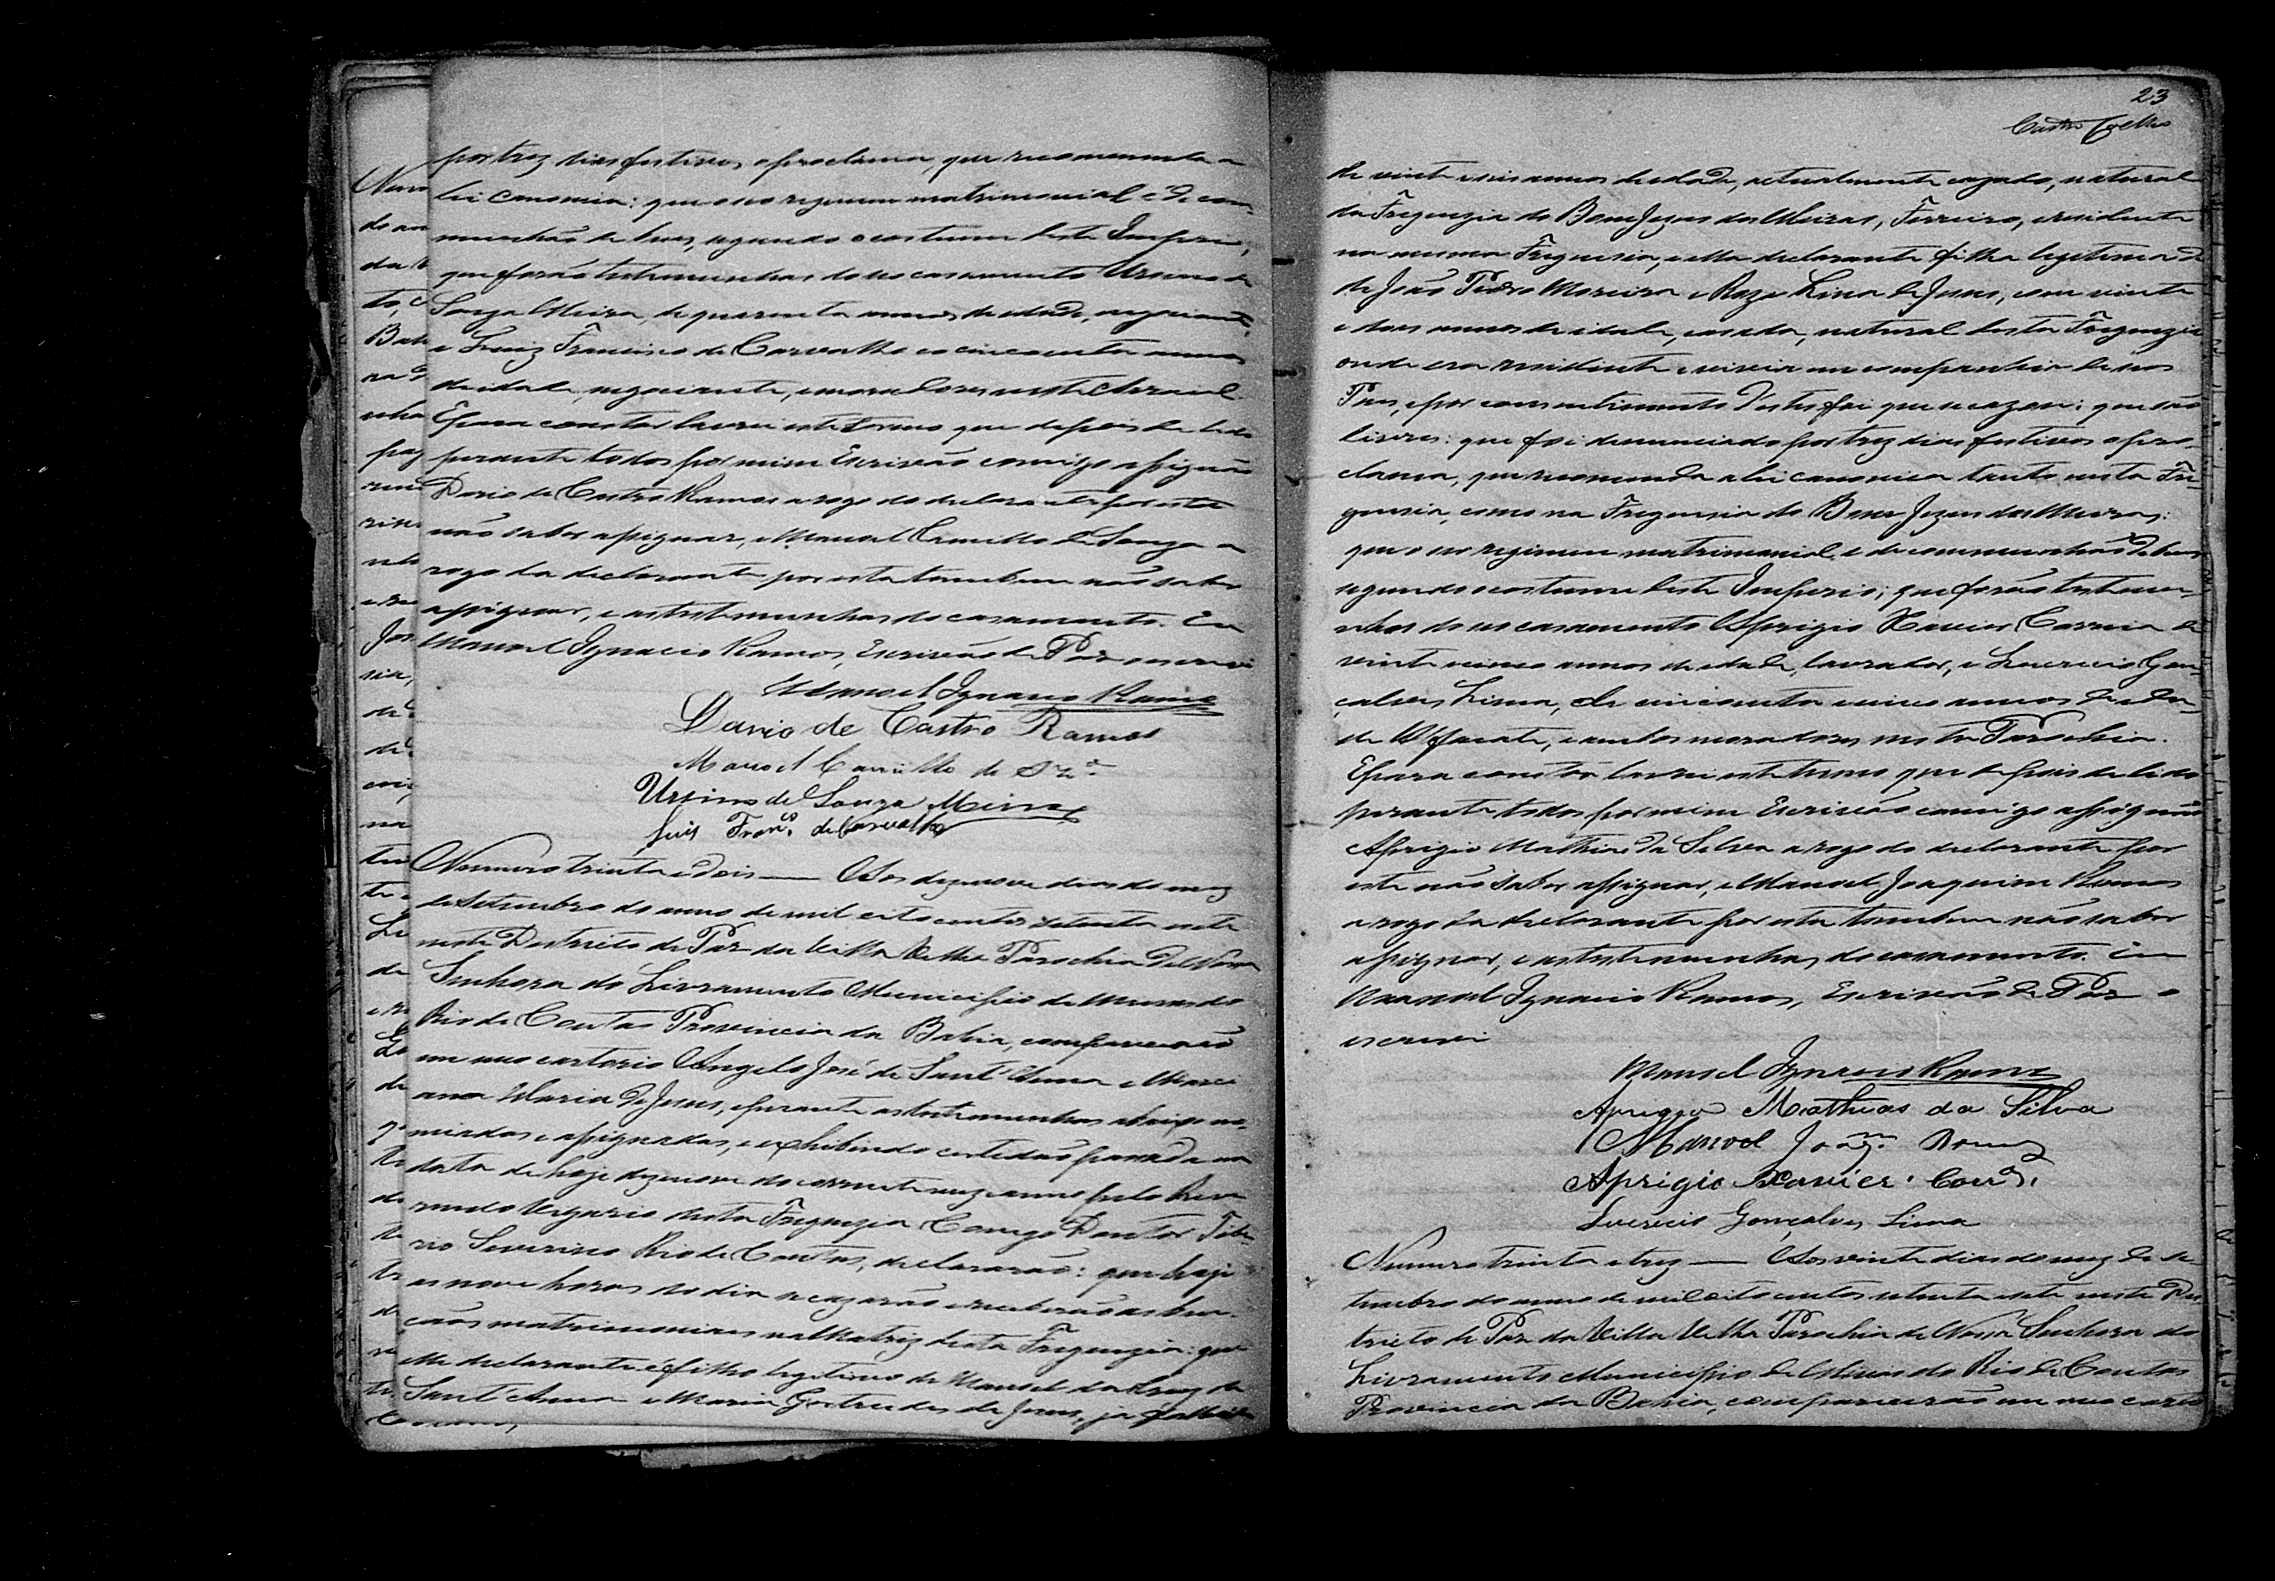 por trez dias festivos o proclama, que recommenda a
lei canonica: que o seo regimem matrimonial é de com-
munhão de bens, segundo o costume deste Imperio;
que forão testemunhas do seo casamento Ursino de
Souza Meira, de quarenta annos de idade, negociante,
e Luiz Francisco de Carvalho co cincoenta annos
de idade, negociante, e moradores neste Arraial.
E para constar lavrei este termo que depois de lido
perante todos por mim Escrivão comigo assignão
Dario de Castro Ramos a rogo do declarante por este
não saber assignar, e Manoel Camillo de Souza a
rogo da declarante por esta tambem não saber
assignar, e as testemunhas do casamento. Eu
Manoel Ignacio Ramos, Escrivão de Paz o escrevi
Manoel Ignacio Ramos
Dario de Castro Ramos
Manoel Camillo de Sza.
Ursino de Souza Meira
Luis Franco. de Carvalho
Numero trinta e dois — Aos dezenove dias do mez
de Setembro do anno de mil oito centos setenta e sete
neste Districto de Paz da Villa Velha Parochia de Nossa
Senhora do Livramento Municipio de Minas do
Rio de Contas Provincia da Bahia, comparecerão
em meo cartorio Angelo José de Sant'Anna e Marci
ana Maria de Jesus, e perante as testemunhas abaixo no-
meadas e assignadas, e exhibindo certidão passada na
data de hoje dezenove do corrente mez e anno pelo Reve
rendo Vigario desta Freguezia Conego Doutor Tibe-
rio Severino Rio de Contas, declararão: que hoje
as nove horas do dia se cazarão e receberão as ben-
çãos matrimoniaes na Matriz desta Freguezia: que
elle declarante é filho legitimo de Manoel da Cruz de
Sant'Anna e Maria Gertrudes de Jesus, já fallecida
23
Castro Coelho
de vinte e seis annos de idade, actualmente cazado, natural
da Freguezia do Bom Jezus dos Meiras, Ferreiro, e residente
na mesma Freguesia, e ella declarante filha legitima d
de João Pedro Moreira e Roza Lina de Jesus, com vinte
e dous annos de idade, casada, natural desta Freguezia
onde era residente e vivia em companhia de seos
Paes, e por consentimento d'estes foi que se cazou: que são
livres: que foi denunciado por trez dias festivos o pro-
clama, que recomenda a lei canonica tanto nesta Fre-
guesia, como na Freguesia do Bom Jezus dos Meiras:
que o seo regimem matrimonial é de communhão de bens
segundo o costume deste Imperio; que forão testemu-
nhas do seo casamento Aprigio Xavier Correia de
vinte e cinco annos de idade, lavrador, e Lucrecio Gon-
çalves Lima, de cincoenta e cinco annos de ida-
de Alfaiate, e ambos moradores nesta Parochia.
E para constar lavrei este termo que depois de lido
perante todos por mim Escrivão comigo assignão
Aprigio Mathias da Silva a rogo do declarante por
este não saber assignar, e Manoel Joaquim Ramos
a rogo da declarante por esta tambem não saber
assignar, e as testemunhas do casamento. Eu
Manoel Ignacio Ramos, Escrivão de Paz o
escrevi
Manoel Ignacio Ramos
Aprigio Mathias da Silva
Manoel Joaqm. Ramos
Aprigio Xavier Corra.
Lucrecio Gonçalves Lima
Numero trinta e trez — Aos vinte dias do mez de Se-
tembro do anno de mil oito centos setenta e sete neste Dis-
tricto de Paz da Villa Velha Parochia de Nossa Senhora do
Livramento Municipio de Minas do Rio de Contas
Provincia da Bahia, comparecerão em meo carto